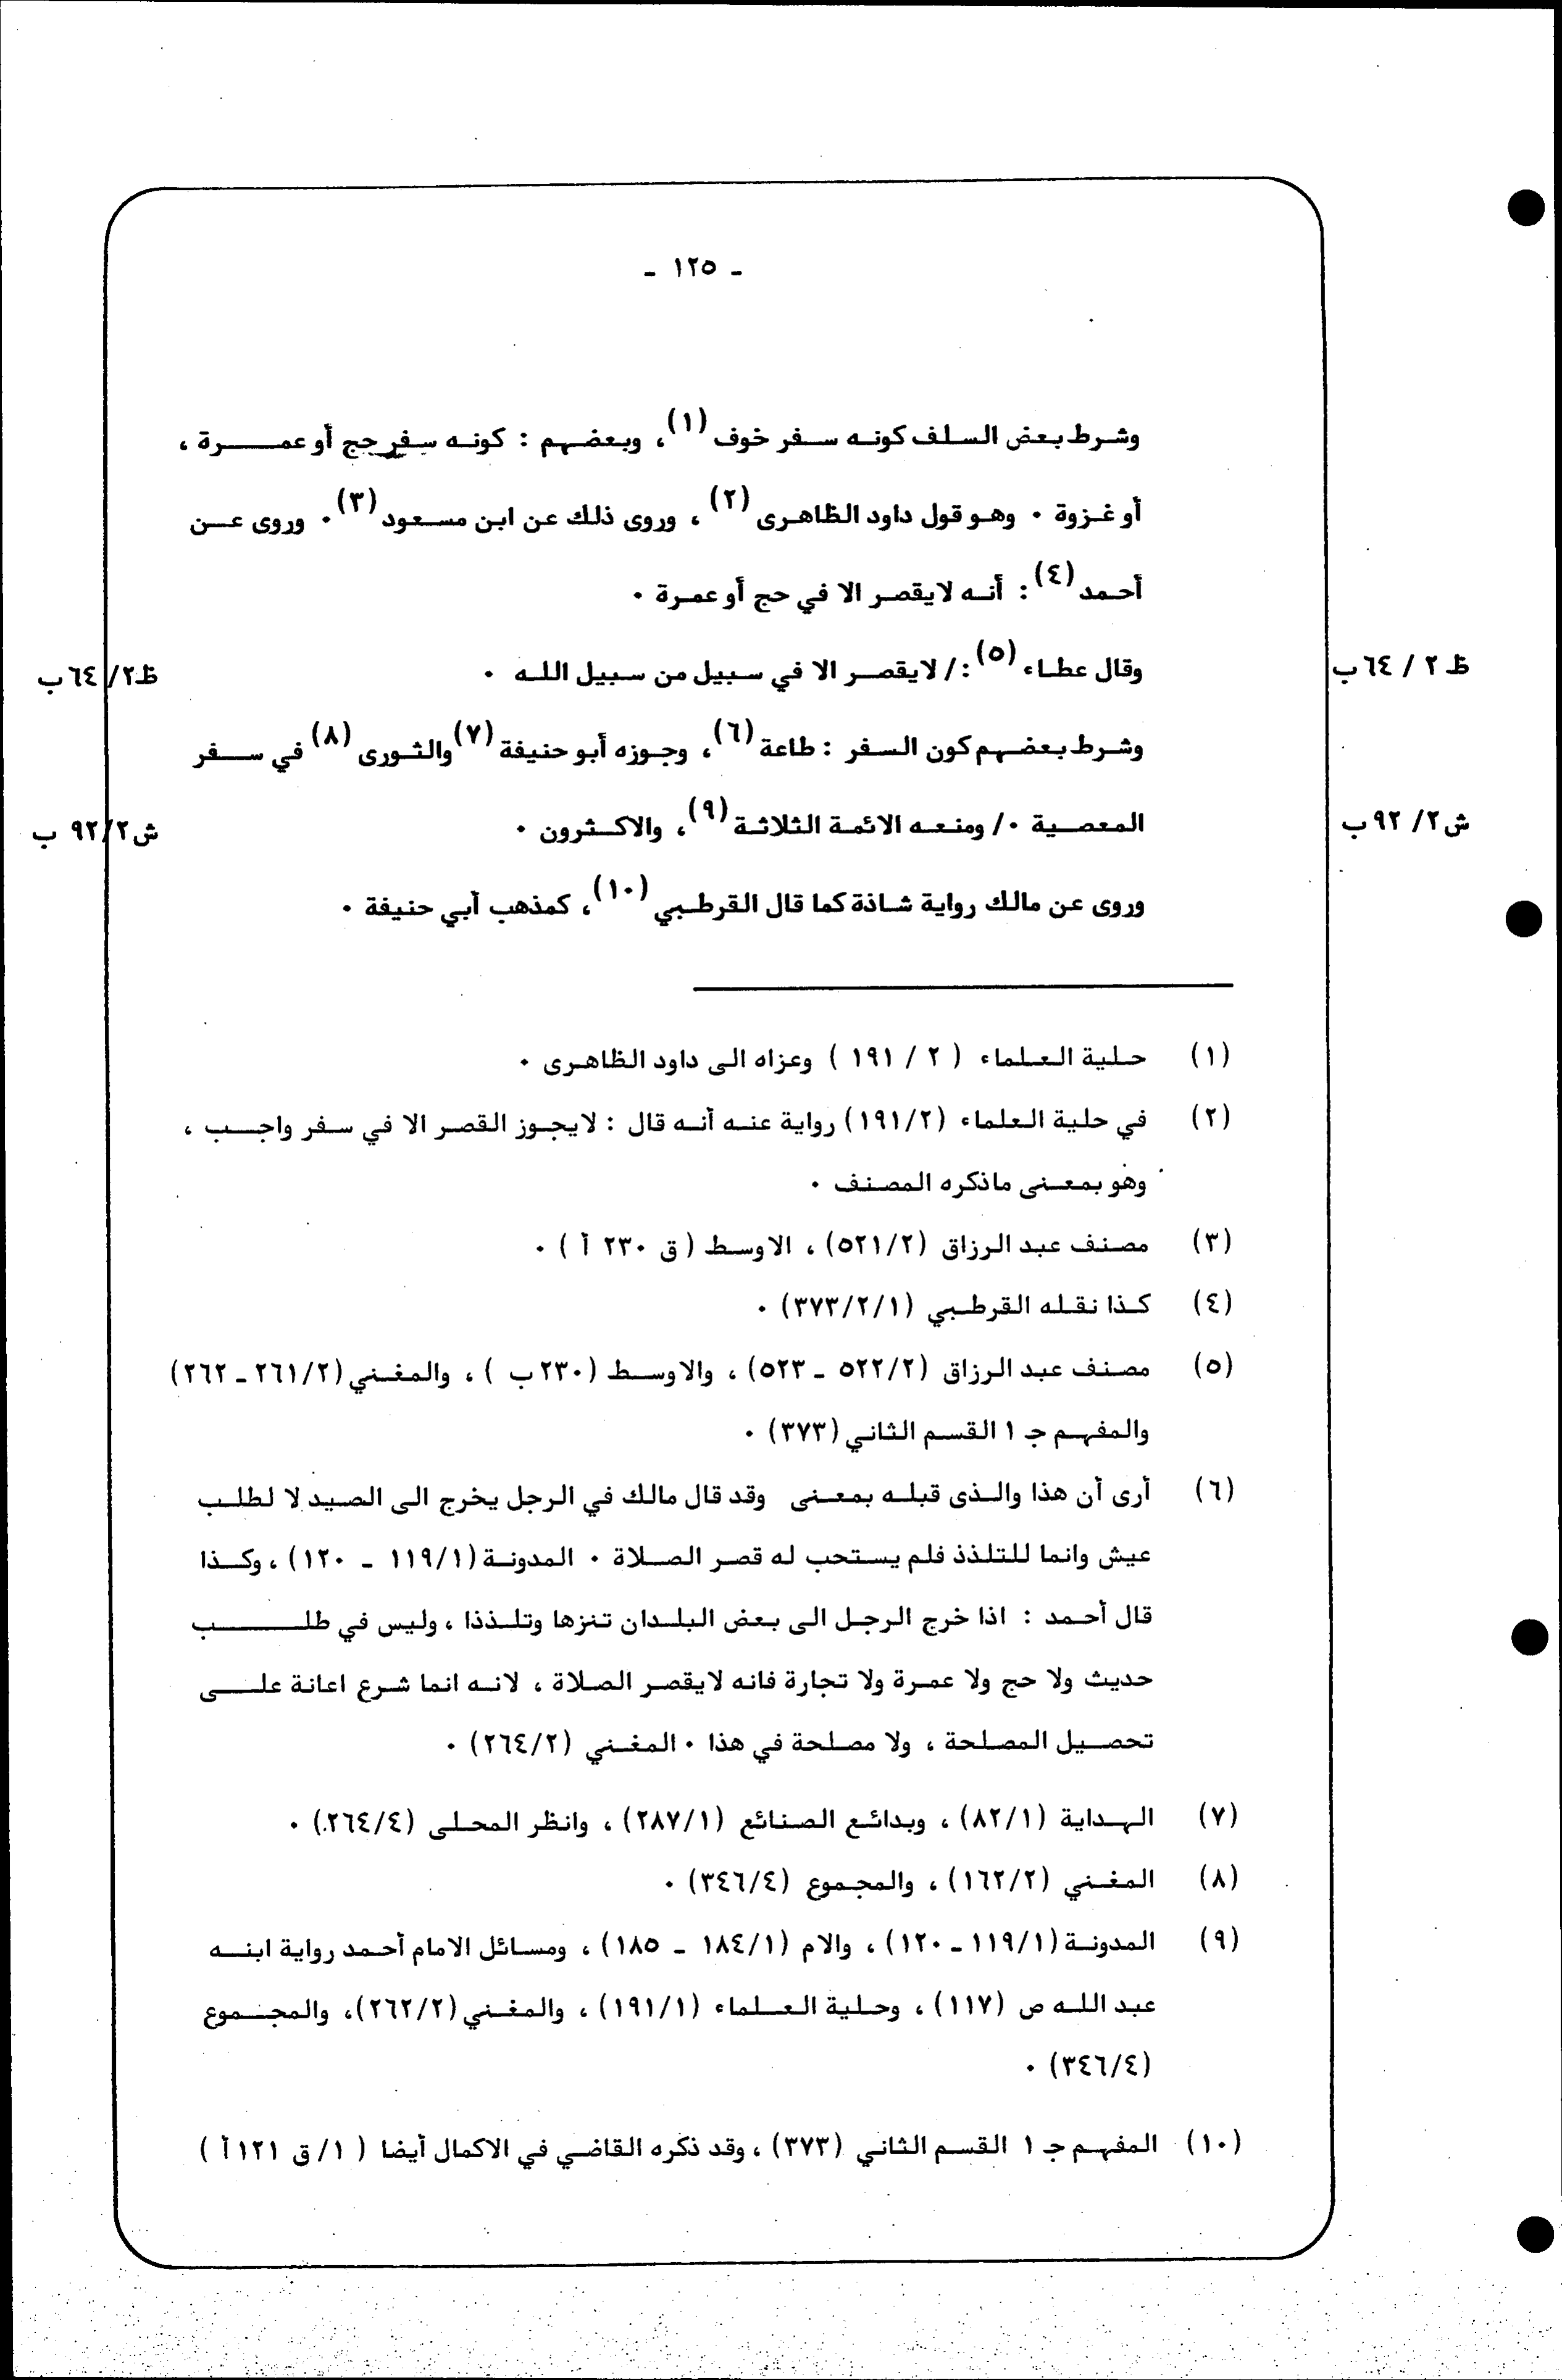 - ١٢٥ -
وشرط بعض السلف كونه سفر خوف (١)، وبعضهم : كونه سفر حج أو عمرة ،
أو غزوة ٠ وهو قول داود الظاهرى (٢) ، وروى ذلك عن ابن مسعود (٣) ٠ وروى عن
أحمد (٤) : أنه لايقصر الا في حج أو عمرة ٠
وقال عطاء (٥) : / لايقصر الا في سبيل من سبيل الله ٠
ظ ٢ / ٦٤ ب
ظ٢/ ٦٤ ب
وشرط بعضهم كون السفر : طاعة (٦)، وجوزه أبو حنيفة (٧) والثورى (٨) في سفر
المعصية ٠/ ومنعه الائمة الثلاثة (٩)، والاكثرون ٠
ش٢/ ٩٢ ب
ش٢/ ٩٢ ب
وروى عن مالك رواية شاذة كما قال القرطبي (١٠)، كمذهب أبي حنيفة ٠
(١) حلية العلماء ( ٢ / ١٩١ ) وعزاه الى داود الظاهرى ٠
(٢) في حلية العلماء (١٩١/٢) رواية عنه أنه قال : لايجوز القصر الا في سفر واجب ،
وهو بمعنى ماذكره المصنف ٠
(٣) مصنف عبد الرزاق (٥٢١/٢) ، الاوسط ( ق ٢٣٠ أ ) ٠
(٤) كذا نقله القرطبي (٣٧٣/٢/١) ٠
(٥) مصنف عبد الرزاق (٥٢٢/٢ - ٥٢٣) ، والاوسط (٢٣٠ب ) ، والمغني (٢٦١/٢ - ٢٦٢)
والمفهم جـ ١ القسم الثاني (٣٧٣) ٠
(٦) أرى أن هذا والذى قبله بمعنى وقد قال مالك في الرجل يخرج الى الصيد لا لطلب
عيش وانما للتلذذ فلم يستحب له قصر الصلاة ٠ المدونة (١١٩/١ - ١٢٠) ، وكذا
قال أحمد : اذا خرج الرجل الى بعض البلدان تنزها وتلذذا ، وليس في طلب
حديث ولا حج ولا عمرة ولا تجارة فانه لايقصر الصلاة ، لانه انما شرع اعانة على
تحصيل المصلحة ، ولا مصلحة في هذا ٠ المغني (٢٦٤/٢) ٠
(٧) الهداية (٨٢/١) ، وبدائع الصنائع (٢٨٧/١) ، وانظر المحلى (٢٦٤/٤) ٠
(٨) المغني (١٦٢/٢) ، والمجموع (٣٤٦/٤) ٠
(٩) المدونة (١١٩/١ - ١٢٠) ، والام (١٨٤/١ - ١٨٥) ، ومسائل الامام أحمد رواية ابنه
عبد الله ص (١١٧) ، وحلية العلماء (١٩١/١) ، والمغني (٢٦٢/٢)، والمجموع
(٣٤٦/٤) ٠
(١٠) المفهم جـ ١ القسم الثاني (٣٧٣) ، وقد ذكره القاضي في الاكمال أيضا ( ١/ ق ١٢١ أ )